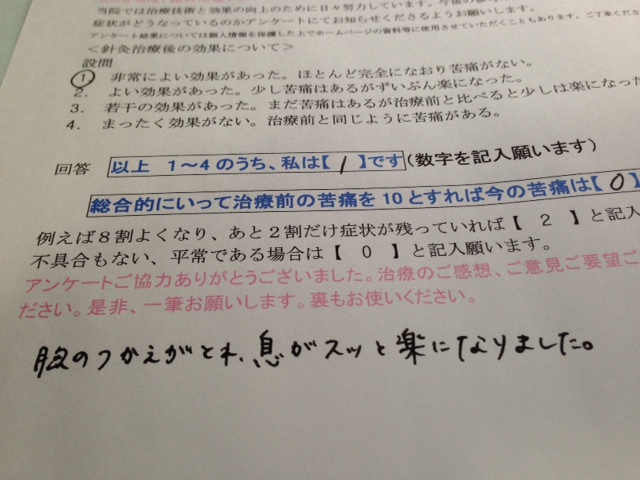 当院では治療技術と効果の向上のために日々努力しています。今後の
症状がどうなっているのかアンケートにてお知らせくださるようお願いします。
アンケート結果については個人情報を保護した上でホームページの資料等に使用させていただくこともあります。ご了承くださ
<針灸治療後の効果について>
設問
1. 非常によい効果があった。ほとんど完全になおり苦痛がない。
2. よい効果があった。少し苦痛はあるがずいぶん楽になった。
3. 若干の効果があった。まだ苦痛はあるが治療前と比べると少しは楽になった
4. まったく効果がない。治療前と同じように苦痛がある。
回答 以上 1～4のうち、私は【 1 】です(数字を記入願います)
総合的にいって治療前の苦痛を10とすれば今の苦痛は【 0 】
例えば8割よくなり、あと2割だけ症状が残っていれば【 2 】と記入
不具合もない、平常である場合は【 0 】と記入願います。
アンケートご協力ありがとうございました。治療のご感想、ご意見ご要望ご
ださい。是非、一筆お願いします。裏もお使いください。
胸のつかえがとれ、息がスッと楽になりました。